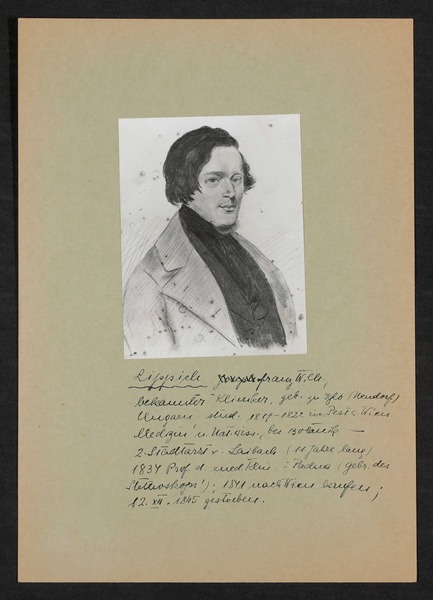 Lippich Franz Wilh.,
bekannter Kliniker, geb. zu Iglo (Neudorf)
Ungarn, stud. 1819-1822 in Pest u. Wien
Medizin u. Nat. wiss., bes. Botanik —
2. Stadtarzt v. Laibach (11 Jahre lang)
1834 Prof. d. med. Klin. i. Padua (gebr. des
Stethoskops!); 1841 nach Wien berufen;
12. XII. 1845 gestorben.